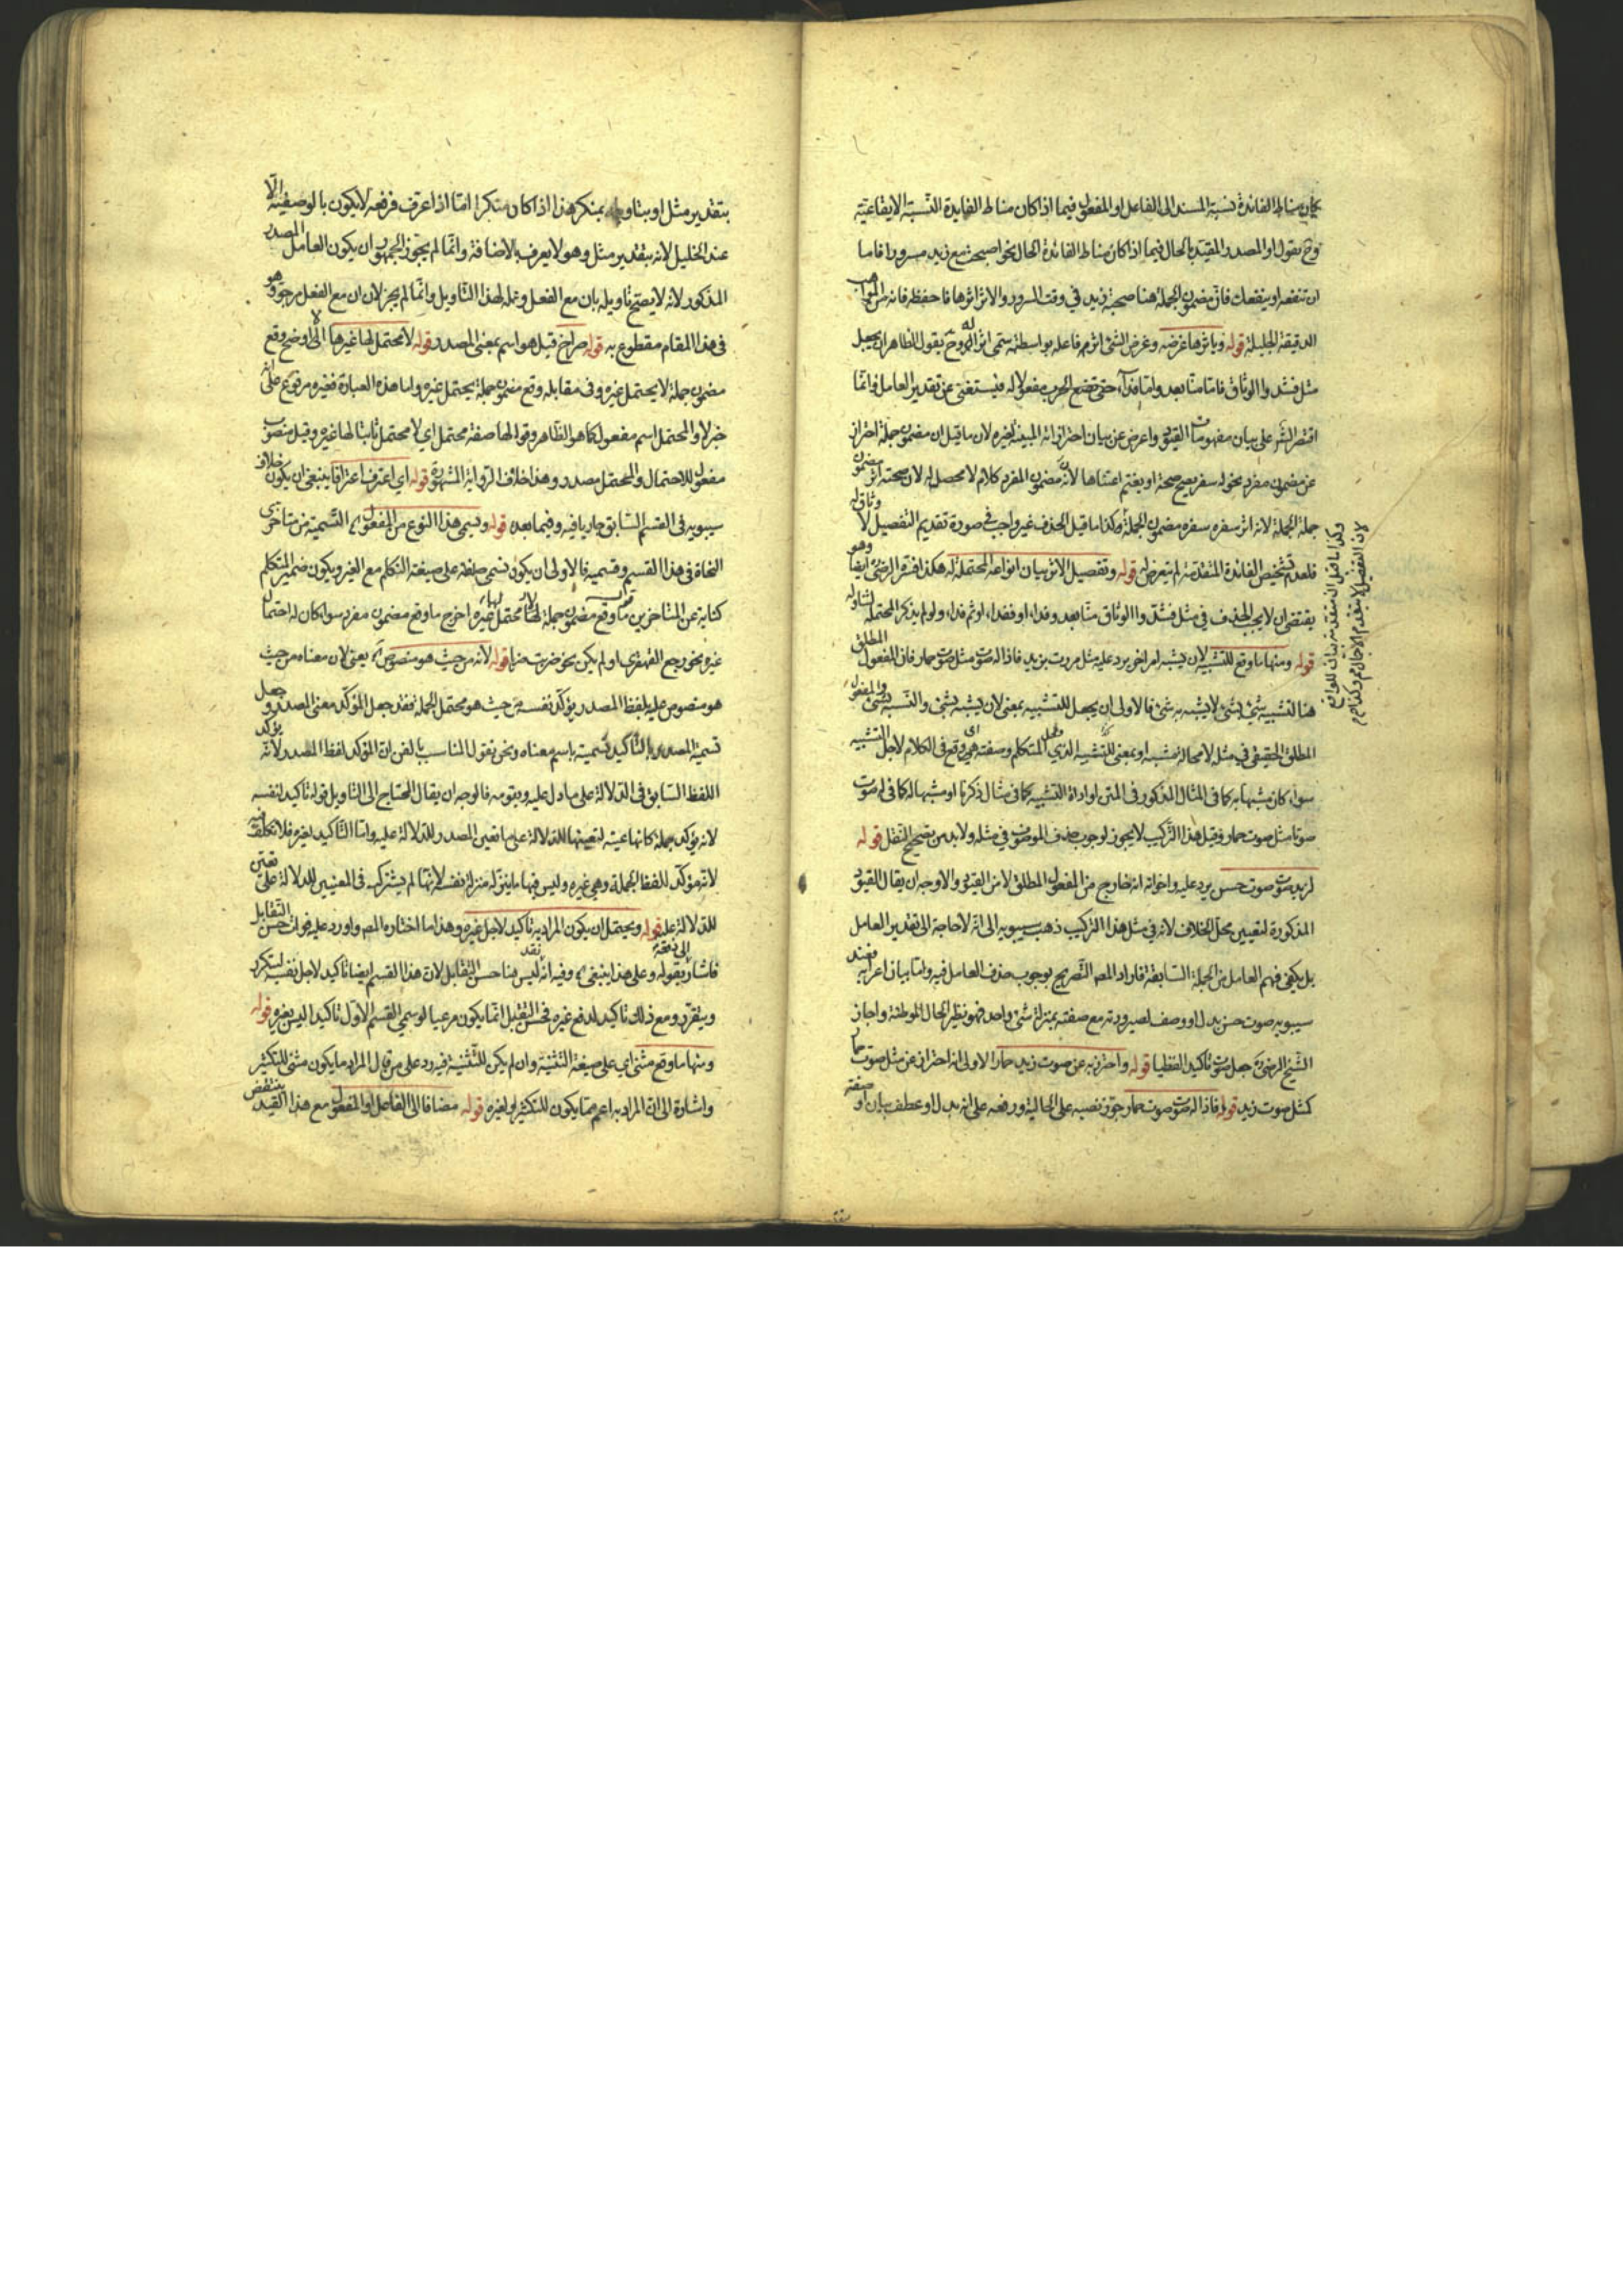 كان مناط الفائدة نسبة المسند الى الفاعل او المفعول فيما اذا كان مناط الفايدة النسبة الايقاعية
وح يقول او المصدر المقيد بالحال فيما اذا كان مناط الفائدة الحال نحو اصبحت مع زيد مسرورا فاما
ان تنفعه او ينفعك فان مضمون الجملة هنا صحبة زيد في وقت السرور والاثر اثرها فاحفظه فانه من المواهب
الدقيقة الجليلة قوله وباثرها غرضه وغرض الشئ اثره فاعله بواسطته يسمى اثرا له وح يقول الظاهر ان يجعل
مثل فشدوا الوثاق فاما منا بعد واما فداء حتى تضع الحرب مفعولا له فيستغنى عن تقدير العامل وانما
اقتصر الش على بيان مفهومات القيود واعرض عن بيان احترازاته المبينة لغيره لان ما قيل ان مضمون جملة احتراز
عن مضمون مفرد نحو له سفر يصح صحة او يغتم اغتناما لانه مضمون المفرد كلام لا محصل له لان صحته اثر مضمون
جملة الجملة لانه اثر سفره سفره مضمون الجملة وكذا ما قيل الحذف غير واجب في صورة تقديم التفصيل لا وثاق له
فلعدم تشخيص الفائدة المتقدمة لم يتعرض له قوله وتفصيل الاثر بيان انواعه المحتملة له هكذا فسره الرضى ايضا وهو
يقتضى ان لا يجب الحذف في مثل فشدوا الوثاق منا بعد وفداء او فداء او ثم فداء ولو لم يذكر المحتملة لشاوله
قوله ومنها ما وقع للتشبيه لان يشبه امر اخر يرد عليه مثل مررت بزيد فاذا له صوت مثل صوت حمار فان المفعول المطلق
هنا لتشبيه شئ بشئ لا يشبه به شئ فالاولى ان يجعل للتشبيه بمعنى لان يشبه بشئ والتشبه بشئ والمفعول
المطلق الحقيقى في مثله لا محالة مشبه او بمعنى للتشبيه الذي فعل المتكلم وصفته اى وقع في الكلام لاجل التشبيه
سواء كان مشبها به كما في المثال المذكور في المتن او اداة التشبيه كما في مثال ذكرنا او مشبها له كما في له صوت
صوتا مثل صوت حمار وقيل هذا التركيب لا يجوز لوجوب حذف الموصوف في مثله ولا بد من تصحيح النقل قوله
لزيد صوت صوت حسن يرد عليه واخواته انه خارج من المفعول المطلق لا من القيود والاوجه ان يقال القيود
المذكورة لتعيين محل الخلاف لانه في مثل هذا التركيب ذهب سيبويه الى انه لا حاجة الى تقدير العامل
بل يكفى فهم العامل من الجملة السابقة فاراد المص التصريح بوجوب حذف العامل فيه واما بيان اعرابه فعند
سيبويه صوت حسن بدل او وصف لصيرورته مع صفته بمنزلة شئ واحد فهو نظير الحال الموطئة واجاز
الشيخ الرضى جعل صوت تاكيدا لفظيا قوله واحترز به عن صوت زيد صوت حمار الاولى انه احتراز عن مثل صوت حمار
كمثل صوت زيد قوله فاذا له صوت صوت حمار جوز نصبه على الحالية ورفعه على انه بدل او عطف بيان او صفة
وكذا ما قيل ان متقدمة بيان للواقع
لان التفصيل لا يتقدم الاجمال
بتقدير مثل او بتاويله بمنكر هذا اذا كان منكرا اما اذا عرف فرفعه لا يكون بالوصفية الا
عند الخليل لانه بتقدير مثل وهو لا يعرف بالاضافة وانما لم يجوز الجمهور ان يكون العامل المصدر
المذكور لانه لا يصح تاويله بان مع الفعل وعمله لهذا التاويل وانما لم يجز لان ان مع الفعل مرجو وهو
في هذا المقام مقطوع به قوله صراخ قيل هو اسم بمعنى المصدر قوله لا محتمل لها غيرها الاولى اوضح وقع
مضمون جملة لا يحتمل غيره وفى مقابله وقع مضمون جملة يحتمل غيره واما هذه العبارة فغيره مرفوع على انه
خبر لا والمحتمل اسم مفعول كما هو الظاهر وقوله لها صفة محتمل اي لا محتمل ثابتا لها غيره وقيل منصوب
مفعول للاحتمال والمحتمل مصدر وهذا خلاف الرواية المشهورة قوله اي اعترفت اعترافا ينبغي ان يكون خلاف
سيبويه في القسم السابق جاريا فيه وفيما بعده قوله ويسمى هذا النوع من المفعول التسمية من متاخرى
النحاة في هذا القسم وقسيميه فالاولى ان يكون نسمى صلغة على صيغة التكلم مع الغير ويكون ضمير المتكلم
كناية عن المتاخرين قوله ما وقع مضمون جملة لا محتمل لها غيره اخرج ما وقع مضمون مفرد سواء كان له احتمال
غيره نحو رجع القهقرى او لم يكن نحو ضربت ضربا قوله لانه من حيث هو منصوص يعنى لان معناه من حيث
هو منصوص عليه بلفظ المصدر يؤكد نفسه من حيث هو محتمل الجملة فقد جعل المؤكد معنى المصدر وجعل
تسمية المصدر بالتاكيد تسمية باسم معناه ونحن نقول المناسب بالفن ان المؤكد لفظ المصدر لانه يؤكد
اللفظ السابق في الدلالة على ما دل عليه ويقويه فالوجه ان يقال المحتاج الى التاويل قوله تاكيدا لنفسه
لانه يؤكد جملة كانها عينه لتعينها للدلالة على ما تعين المصدر للدلالة عليه واما التاكيد لغيره فلا تكلف فيه
لانه مؤكد للفظ الجملة وهي غيره وليس فيها ما ينزله منزلة نفسه لانهما لم يشتركا في المعنيين للدلالة على تعين
للدلالة عليه قوله ويحتمل ان يكون المراد به تاكيد لاجل غيره وهذا ما اختاره المص واورد عليه فوات حسن التقابل
فاشار الى دفعه بقوله وعلى هذا ينبغى وفيه انه ليس هنا حسن التقابل لان هذا القسم ايضا تاكيد لاجل نفسه ليتكرر
ويتقرر ومع ذلك تاكيد لدفع غيره فحسن التقابل انما يكون مرعيا لو سمي القسم الاول تاكيدا ليس لغيره قوله
ومنها ما وقع مثنى اي على صيغة التثنية وان لم يكن للتثنية فيه رد على من قال المراد ما يكون مثنى للتكثير
واشارة الى ان المراد به اعم مما يكون للتكثير او لغيره قوله مضافا الى الفاعل او المفعول مع هذا القيد ينتقض